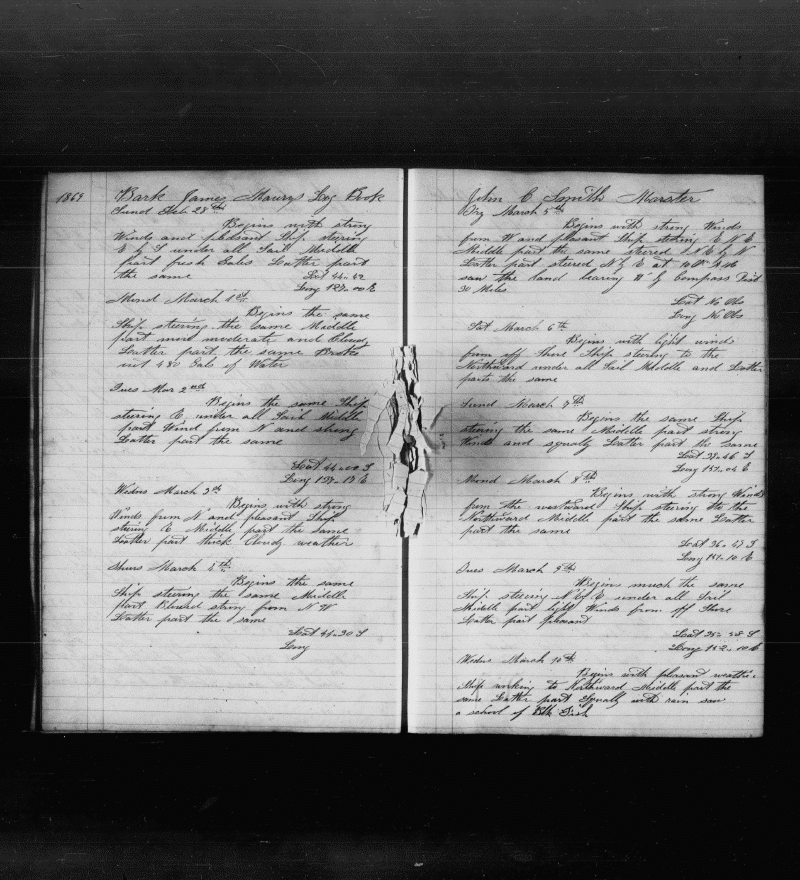 1869
Bark James Maurys Log Book
Sund Feb 28th
Begins with strong
Winds and pleasant Ship steering
E by S under all Sail Middle
part fresh Gales Latter part
the same
Lat 44-42
Long 127-00 E
Mond March 1st
Begins the same
Ship steering the same Middle
part more moderate and Cloudy
Latter part the same Broke
out 480 Gals of Water
Tues Mar 2nd
Begins the same Ship
steering E under all Sail Middle
part Wind from N and strong
Latter part the same
Lat 44-00 S
Long
Wednes March 3th
Begins with strong
Winds from N and pleasant Ship
steering E Middle part the same
Latter part thick Cloudy weather
Thurs March 4th
Begins the same
Ship steering the same Middle
part Blowed strong from N W
Latter part the same
Lat 41-30 S
Long
John C Smith Marster
Fry March 5th
Begins with strong Winds
from W and pleasant Ship steering E N E
Middle part the same steered N E by N
Latter part steered N by E at
saw the land bearing by Compass Dist
30 Miles
Lat No Obs
Long No Obs
Sat March 6th
Begins with light wind
from off Shore Ship steering to the
Northward under all Sail Middle and Latter
parts the same
Sund March 7th
Begins the same Ship
steering the same Middle part strong
Winds and squaly Latter part the same
Lat 38-46 S
Long 151-04 E
Mond March 8th
Begins with strong Winds
from the westward Ship steering to the
Northward Middle part the same Latter
part the same
Lat 36-47 S
Long 151-10 E
Tues March 9th
Begins much the same
Ship steering N by E under all Sail
Middle part light Winds from off Shore
Latter part pleasant
Lat 35- S
Long 152-10 E
Wednes March 10th
Begins with pleasant weather
Ship working to Northward Middle part the
same Latter part Squally with rain saw
a school of Blk Fish